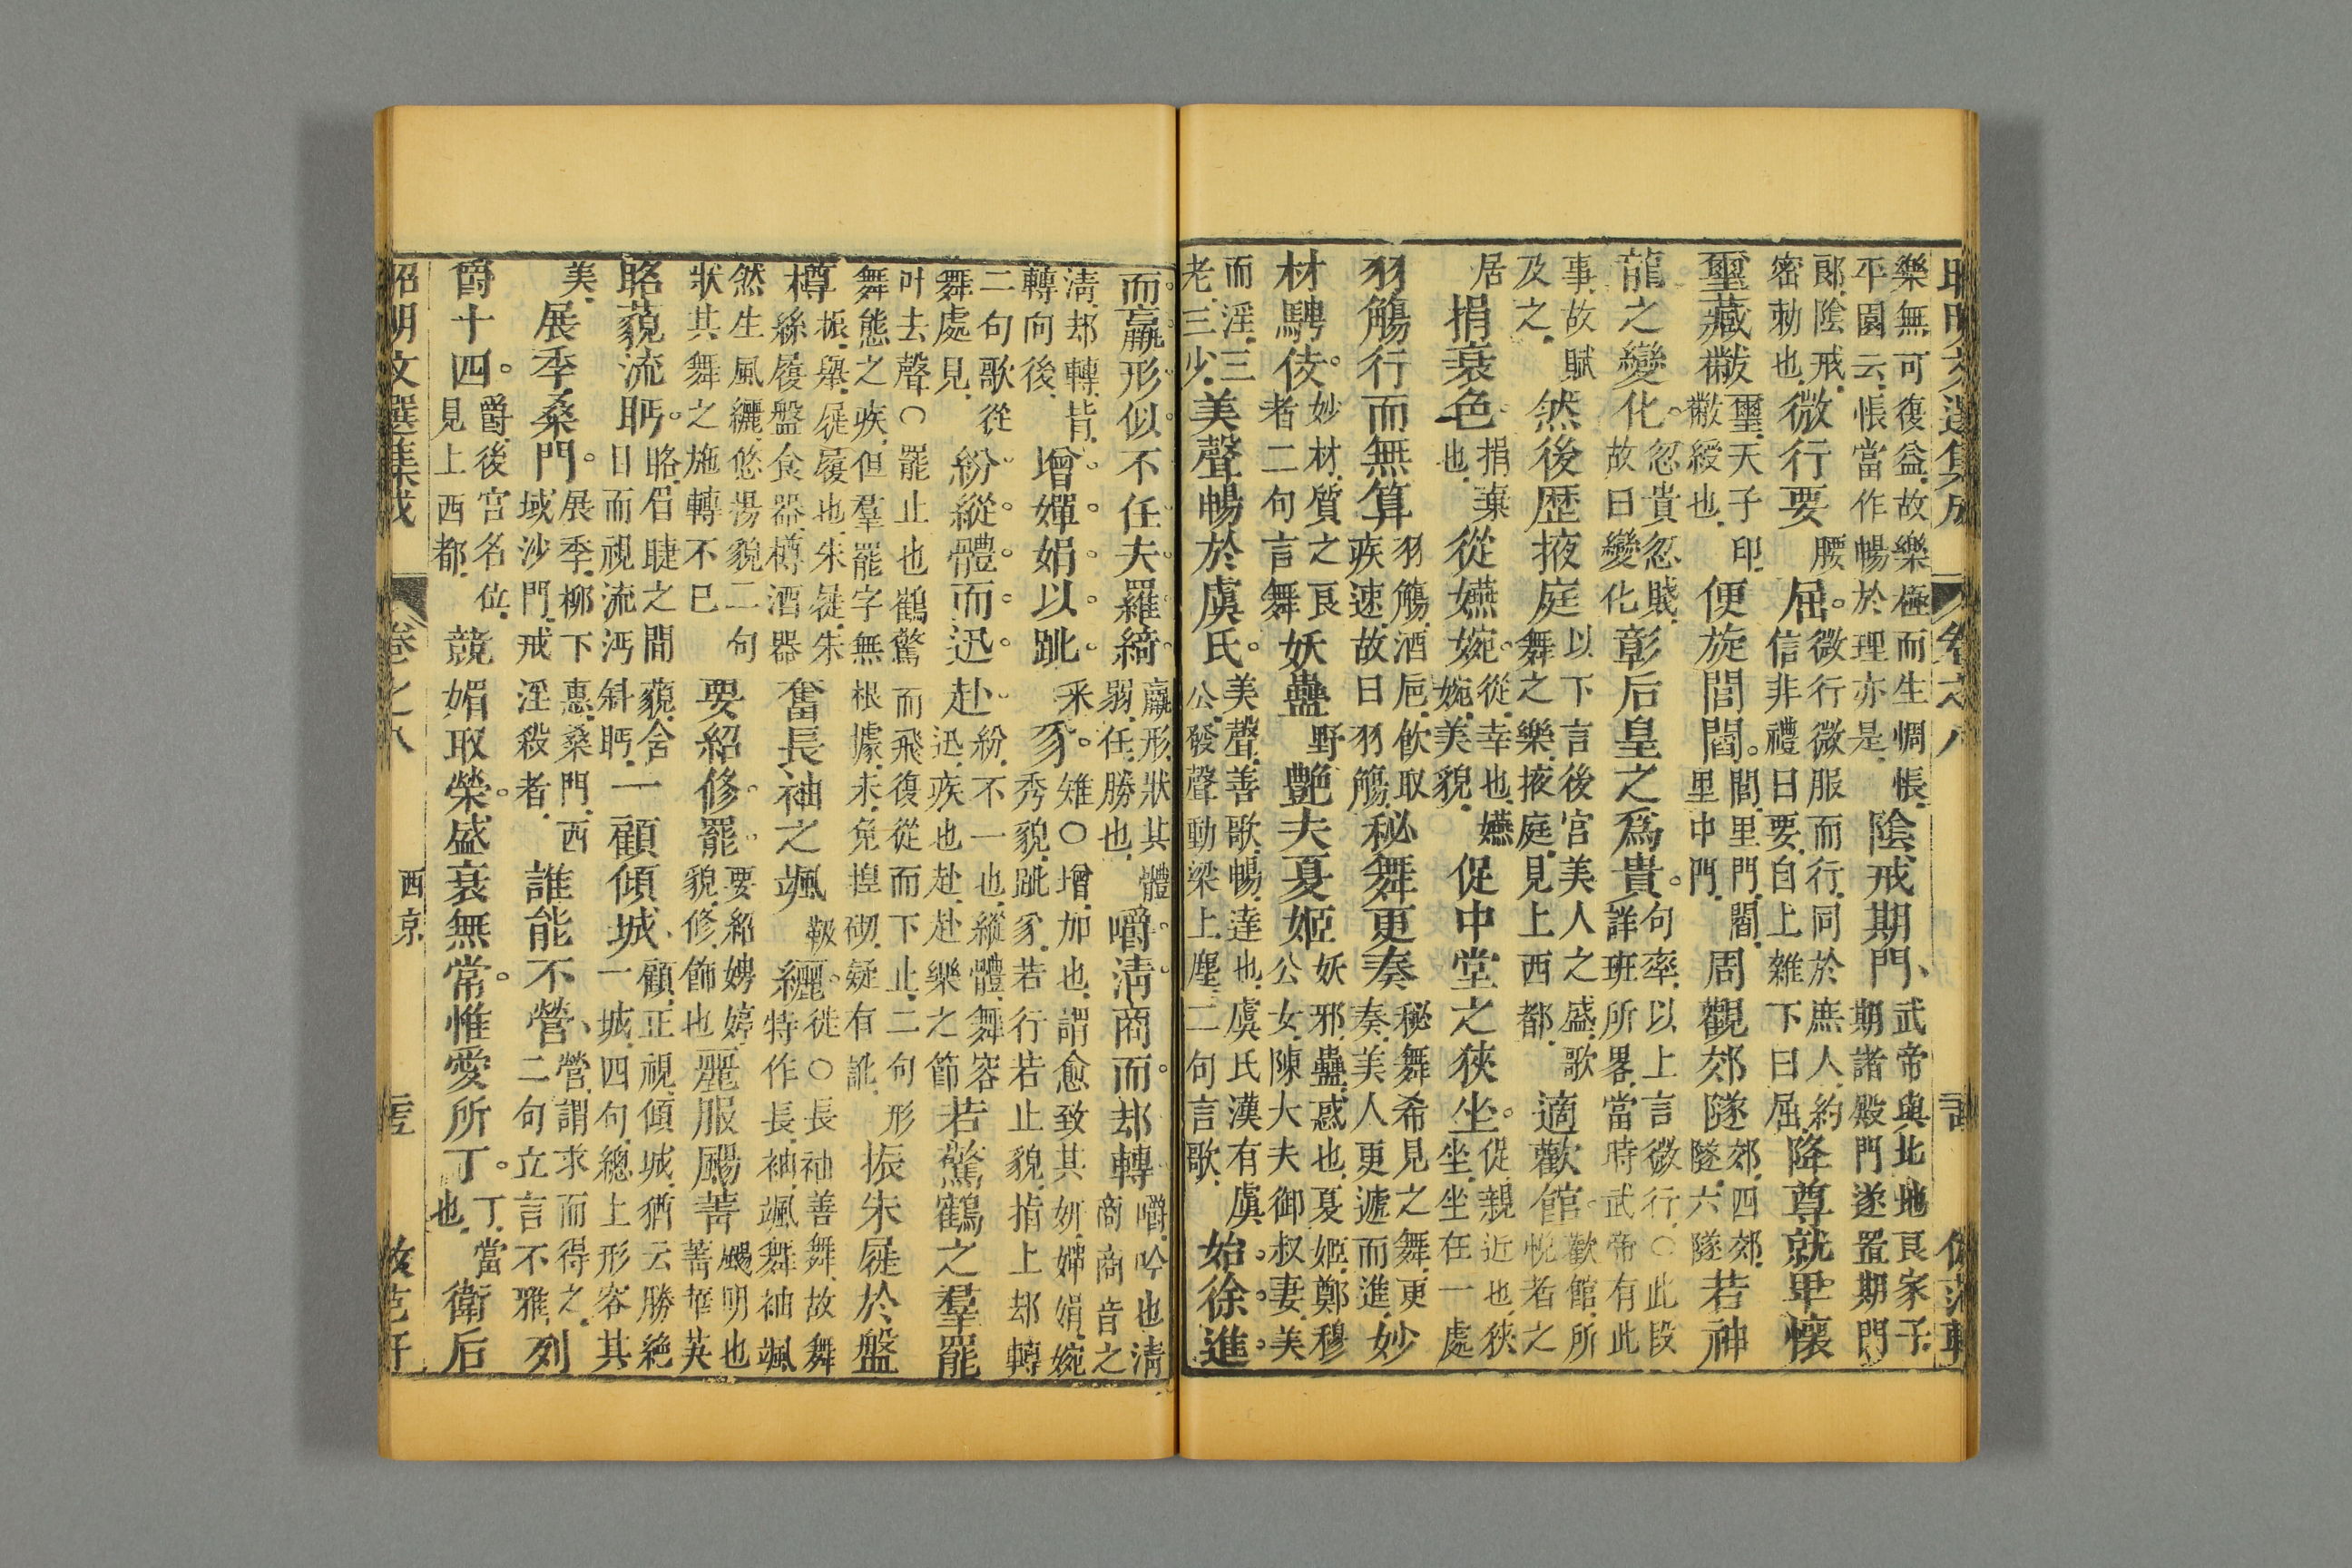 昭明文選集成 卷之八
樂無可復益故樂極而生惆悵
平園云悵當作暢於理亦是
陰戒期門、
武帝與北地良家子
期諸殿門遂置期門
郎陰戒
密勅也
微行要
腰
屈。
微行微服而行同於庶人約
信非禮曰要自上雜下曰屈
降尊就卑懷
璽藏黻
璽天子印
黻綬也
便旋閭閻。
閭里門閻
里中門
周觀郊隧
郊四郊
隧六隧
若神
龍之變化。
忽貴忽賤
故曰變化
彰后皇之爲貴。
句率以上言微行○此段
詳班所畧當時武帝有此
事故賦
及之
然後歷掖庭
以下言後宮美人之盛歌
舞之樂掖庭見上西都
適歡館。
歡館所
悅者之
居
捐衰色。
捐棄
也
從嬿婉。
從幸也嬿
婉美貌
促中堂之狹坐。
促親近也狹
坐坐在一處
羽觴行而無算
羽觴酒巵飲取
疾速故曰羽觴
秘舞更奏
秘舞希見之舞更
奏美人更遞而進
妙
材騁伎。
妙材質之良
者二句言舞
妖蠱
野
艷夫夏姬
妖邪蠱惑也夏姬鄭穆
公女陳大夫御叔妻美
而淫三
老三少
美聲暢於虞氏。
美聲善歌暢達也虞氏漢有虞
公發聲動梁上塵二句言歌
始徐進
而羸形似不任夫羅綺
羸形狀其體
弱任勝也
嚼清商而却轉
嚼吟也清
商商音之
清却轉皆
轉向後
增嬋娟以跐
釆
豸。
雉○增加也謂愈致其姸嬋娟婉
秀貌跐豸若行若止貌指上却轉
二句歌從
舞處見
紛縱體而迅赴
紛不一也縱體舞容
迅疾也赴赴樂之節
若驚鶴之羣罷
叶去聲○罷止也鶴驚而飛復從而下止二句形
舞態之疾但羣罷字無根據未免捏砌疑有訛
振朱屣於盤
樽
振舉屣履也朱屣朱
絲履盤食器樽酒器
奮長袖之颯
靸
纚。
徙○長袖善舞故舞
特作長袖颯舞袖颯
然生風纚悠揚貌二句
狀其舞之施轉不已
要紹修罷
要紹娉婷
貌修飾也
麗服颺菁
颺明也
菁華英
眳藐流眄。
眳眉睫之間藐含
目而視流沔斜眄
一顧傾城
顧正視傾城猶云勝絕
一城四句總上形容其
美
展季桑門。
展季柳下惠桑門西
域沙門戒淫殺者
誰能不營、
營謂求而得之
二句立言不雅
列
爵十四。
爵後宮名位
見上西都
競媚取榮。盛衰無常。惟愛所丁。
丁當
也
衛后
昭明文選集成 卷之八 西京